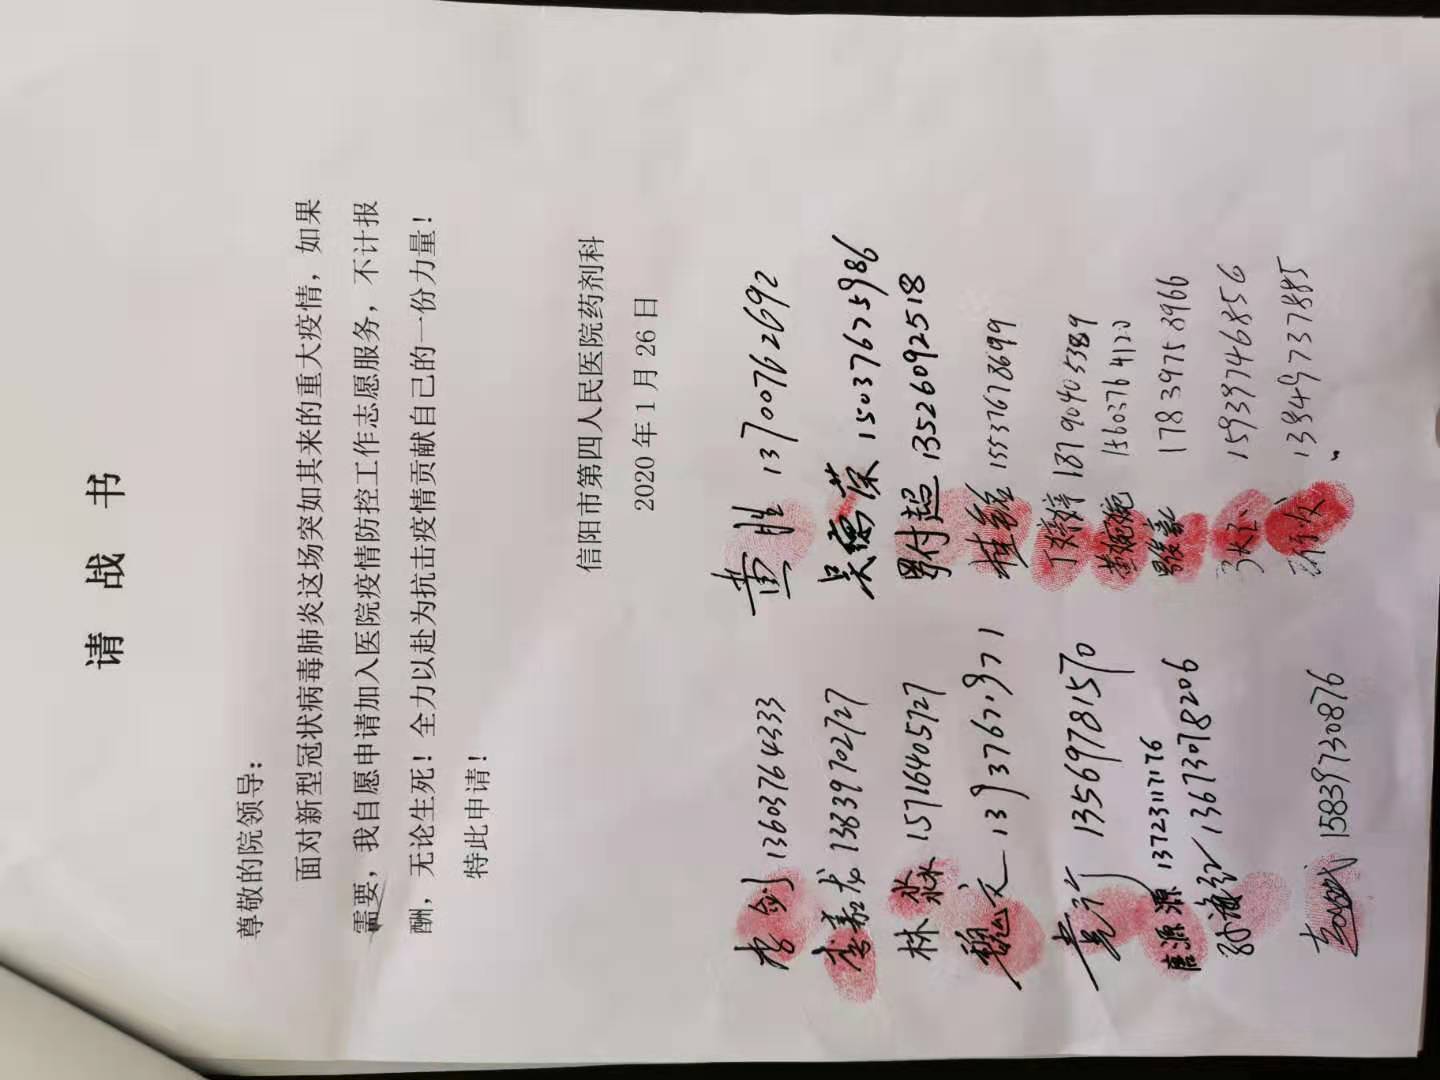 请 战 书
尊敬的院领导：
面对新型冠状病毒肺炎这场突如其来的重大疫情，如果
需要，我自愿申请加入医院疫情防控工作志愿服务，不计报
酬，无论生死！全力以赴为抗击疫情贡献自己的一份力量！
特此申请！
信阳市第四人民医院药剂科
2020年1月26日
李剑 13603764333 黄胜 13700762692
李嘉龙 13839702727 吴德荣 15037675986
林淼 15716405727 付超 13526092518
魏文 15537678699
13569781570 18790905389
唐源源 13723117176 15603764120
孙海红 13673078206 17839753966
15939746856
15839730876 13849737885